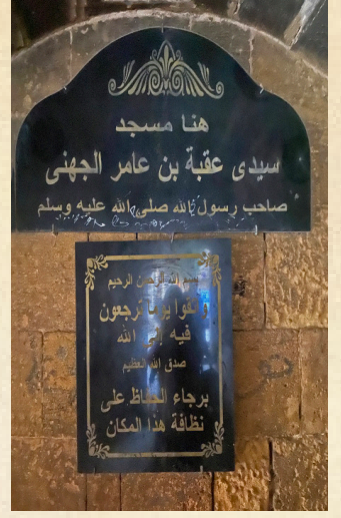 هنا مسجد
سيدى عقبة بن عامر الجهنى
صاحب رسول الله صلى الله عليه وسلم
بسم الله الرحمن الرحيم
واتقوا يوما ترجعون
فيه إلى الله
صدق الله العظيم
برجاء الحفاظ على
نظافة هذا المكان